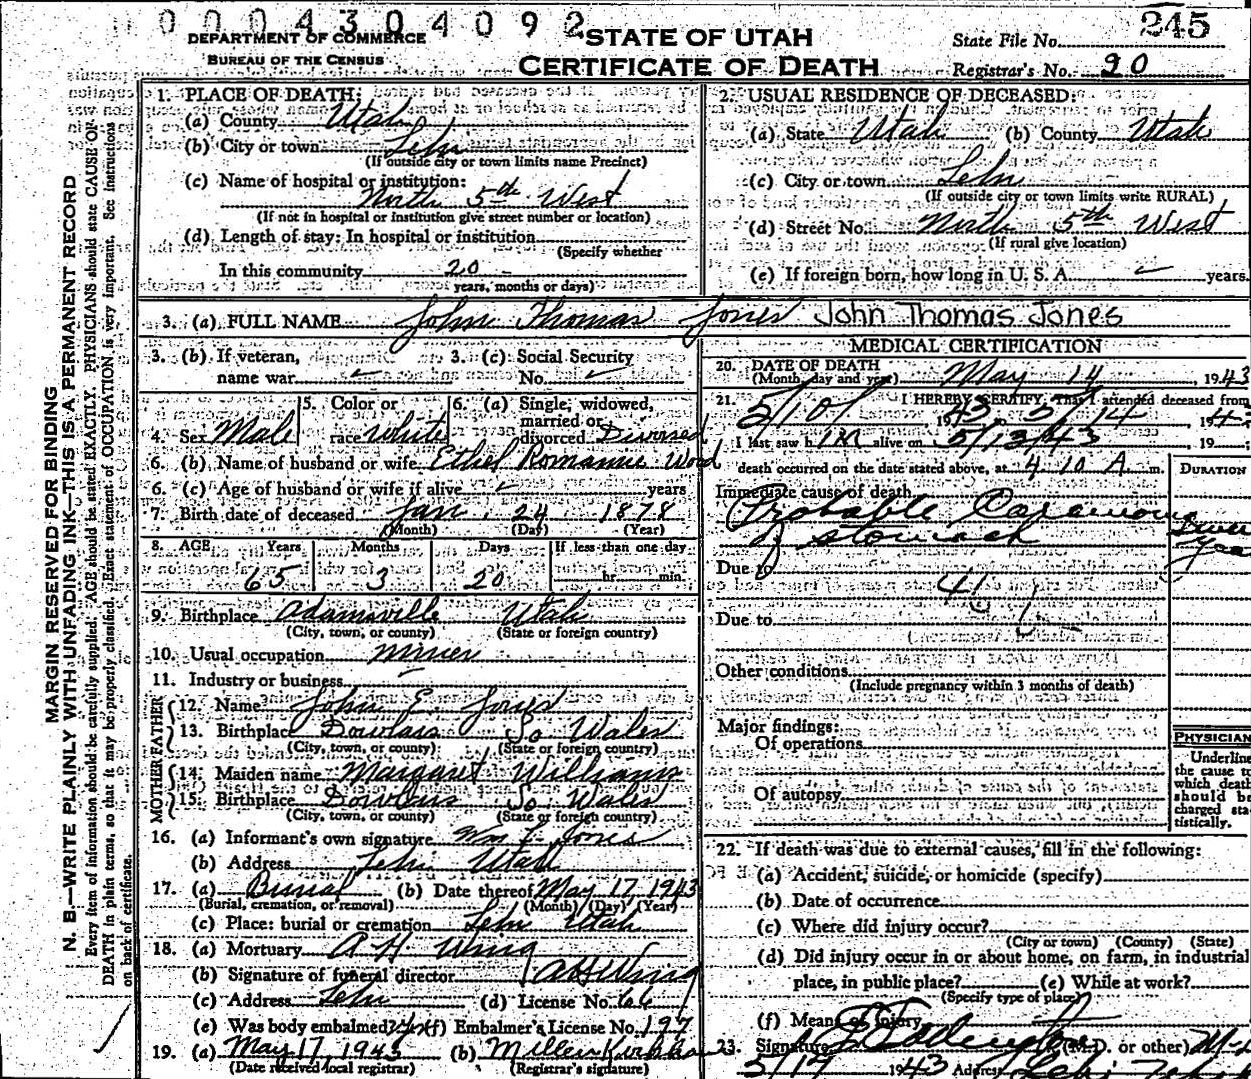 0004304092
DEPARTMENT OF COMMERCE
BUREAU OF THE CENSUS
STATE OF UTAH
CERTIFICATE OF DEATH
245
State File No.
Registrar's No. 20
MARGIN RESERVED FOR BINDING
N. B.—WRITE PLAINLY WITH UNFADING INK—THIS IS A PERMANENT RECORD
Every item of information should be carefully supplied. AGE should be stated EXACTLY. PHYSICIANS should state CAUSE OF
DEATH in plain terms, so that it may be properly classified. Exact statement of OCCUPATION is very important. See instructions
on back of certificate.
1. PLACE OF DEATH:
(a) County Utah
(b) City or town Lehi
(If outside city or town limits name Precinct)
(c) Name of hospital or institution:
North 5th West
(If not in hospital or institution give street number or location)
(d) Length of stay: In hospital or institution
(Specify whether
In this community 20
years, months or days)
2. USUAL RESIDENCE OF DECEASED:
(a) State Utah (b) County Utah
(c) City or town Lehi
(If outside city or town limits write RURAL)
(d) Street No. North 5th West
(If rural give location)
(e) If foreign born, how long in U. S. A. years.
3. (a) FULL NAME John Thomas Jones John Thomas Jones
3. (b) If veteran,
name war
3. (c) Social Security
No.
4. Sex Male
5. Color or
race White
6. (a) Single, widowed,
married or
divorced Divorsed
6. (b) Name of husband or wife Ethel Romannie Wood
6. (c) Age of husband or wife if alive years
7. Birth date of deceased Jan. 24 1878
(Month) (Day) (Year)
8. AGE Years Months Days If less than one day
65 3 20 hr. min.
9. Birthplace Adamsville Utah
(City, town, or county) (State or foreign country)
10. Usual occupation Miner
11. Industry or business
FATHER
12. Name John E. Jones
13. Birthplace Dowlais So Wales
(City, town, or county) (State or foreign country)
MOTHER
14. Maiden name Margaret Williams
15. Birthplace Dowlais So. Wales
(City, town, or county) (State or foreign country)
16. (a) Informant's own signature Wm E. Jones
(b) Address Lehi Utah
17. (a) Burial (b) Date thereof May 17 1943
(Burial, cremation, or removal) (Month) (Day) (Year)
(c) Place: burial or cremation Lehi Utah
18. (a) Mortuary A. H. Wing
(b) Signature of funeral director AH Wing
(c) Address Lehi (d) License No. 66
(e) Was body embalmed? Yes (f) Embalmer's License No. 197
19. (a) May 17, 1943 (b) Millen Kirkham
(Date received local registrar) (Registrar's signature)
MEDICAL CERTIFICATION
20. DATE OF DEATH
(Month, day and year) May 14, 1943
21. I HEREBY CERTIFY, That I attended deceased from
5/10/ 1943 5/14 1943
I last saw him alive on 5/13/43, 19
death occurred on the date stated above, at 4 10 A m.
DURATION
Immediate cause of death
Probable Carcinoma
of stomach
Due to
Due to
Other conditions
(Include pregnancy within 3 months of death)
Major findings:
Of operations
Of autopsy
PHYSICIAN
Underline
the cause to
which death
should be
charged sta-
tistically.
22. If death was due to external causes, fill in the following:
(a) Accident, suicide, or homicide (specify)
(b) Date of occurrence
(c) Where did injury occur?
(City or town) (County) (State)
(d) Did injury occur in or about home, on farm, in industrial
place, in public place? (e) While at work?
(Specify type of place)
(f) Means of injury
23. Signature (M.D. or other) M.D.
5/17 1943 Address Lehi Utah